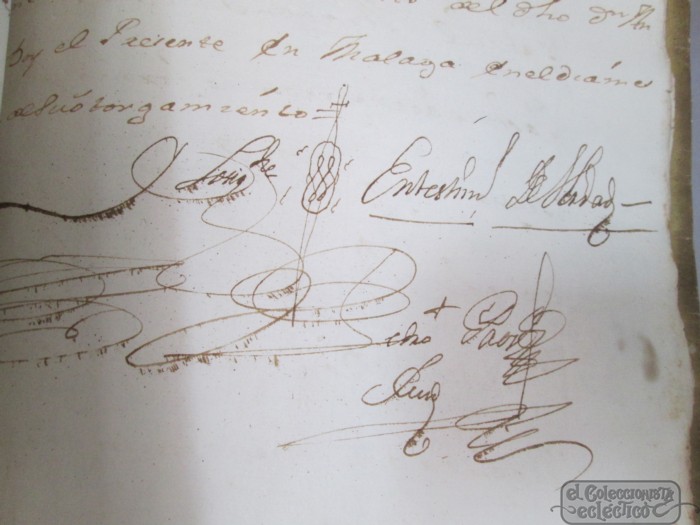 del dho
doy el Presente En Malaga En el dia mes
de su otorgamiento =
Sig ne Entestim. de Verdad
Pedro
Ruiz
el Coleccionista
ecléctico